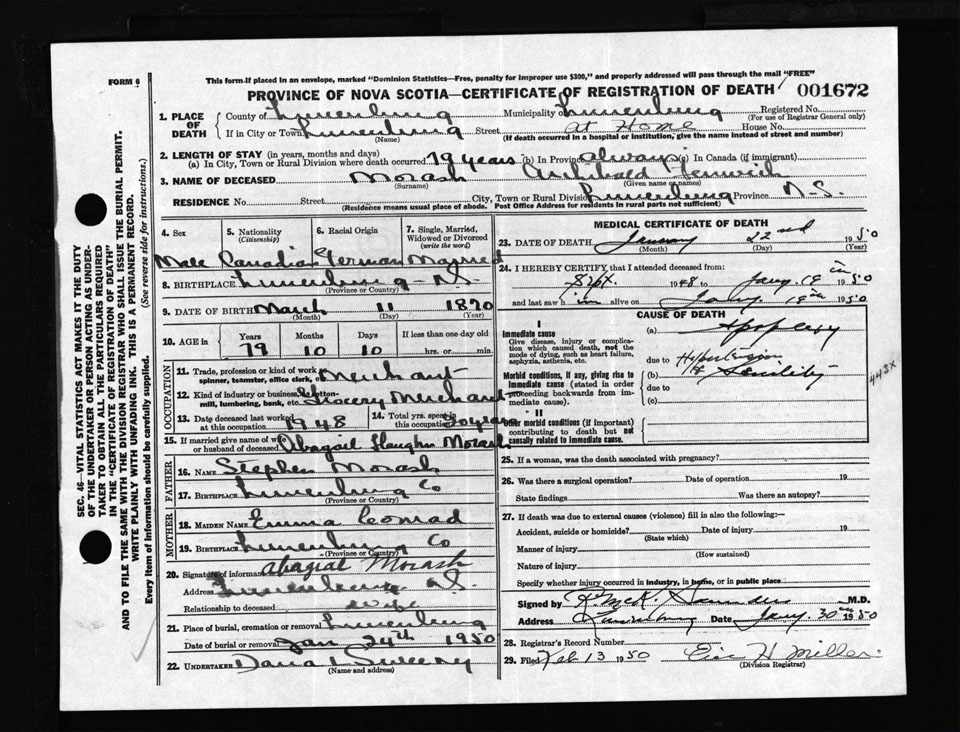 FORM 6
This form if placed in an envelope, marked "Dominion Statistics—Free, penalty for improper use $300," and properly addressed will pass through the mail "FREE"
PROVINCE OF NOVA SCOTIA—CERTIFICATE OF REGISTRATION OF DEATH 001672
1. PLACE OF DEATH
County of Lunenburg Municipality of Lunenburg Registered No.
(For use of Registrar General only)
If in City or Town Lunenburg Street at Home House No.
(Name) (If death occurred in a hospital or institution, give the name instead of street and number)
2. LENGTH OF STAY (in years, months and days)
(a) In City, Town or Rural Division where death occurred 79 years (b) In Province always (c) In Canada (if immigrant)
3. NAME OF DECEASED Morash Archibald Fenwick
(Surname) (Given name or names)
RESIDENCE No. Street City, Town or Rural Division Lunenburg Province N.S.
(Residence means usual place of abode. Post Office Address for residents in rural parts not sufficient)
4. Sex 5. Nationality (Citizenship) 6. Racial Origin 7. Single, Married, Widowed or Divorced (write the word)
Male Canadian German Married
8. BIRTHPLACE Lunenburg - N.S.
(Province or Country)
9. DATE OF BIRTH March 11 1870
(Month) (Day) (Year)
10. AGE in Years Months Days If less than one day old
79 10 10 hrs. or min.
OCCUPATION
11. Trade, profession or kind of work as spinner, teamster, office clerk, etc. Merchant
12. Kind of industry or business, as cotton-mill, lumbering, bank, etc. Grocery Merchant
13. Date deceased last worked at this occupation 1948 14. Total yrs. spent in this occupation
15. If married give name of wife or husband of deceased Abagail Morash
FATHER
16. NAME Stephen Morash
17. BIRTHPLACE Lunenburg Co
(Province or Country)
MOTHER
18. MAIDEN NAME Emma Conrad
19. BIRTHPLACE Lunenburg Co
(Province or Country)
20. Signature of informant Abagial Morash
Address Lunenburg N.S.
Relationship to deceased wife
21. Place of burial, cremation or removal Lunenburg
Date of burial or removal Jan 24th 1950
22. UNDERTAKER Sweeny
(Name and address)
MEDICAL CERTIFICATE OF DEATH
23. DATE OF DEATH January 22nd 1950
(Month) (Day) (Year)
24. I HEREBY CERTIFY that I attended deceased from:
Sept. 1948 to Jany. 19th 1950
and last saw him alive on Jany. 19th 1950
CAUSE OF DEATH
I
Immediate cause
Give disease, injury or complication which caused death, not the mode of dying, such as heart failure, asphyxia, asthenia, etc.
(a) Apoplexy
due to Hypertension
Morbid conditions, if any, giving rise to immediate cause (stated in order proceeding backwards from immediate cause).
(b) Senility
due to
(c)
443X
II
Other morbid conditions (if important) contributing to death but not causally related to immediate cause.
25. If a woman, was the death associated with pregnancy?
26. Was there a surgical operation? Date of operation 19
State findings Was there an autopsy?
27. If death was due to external causes (violence) fill in also the following:—
Accident, suicide or homicide? Date of injury 19
(State which)
Manner of injury
(How sustained)
Nature of injury
Specify whether injury occurred in industry, in home, or in public place
Signed by Saunders M.D.
Address Lunenburg Date Jany 30th 1950
28. Registrar's Record Number
29. Filed Feb 13 1950 Eric H Miller
(Division Registrar)
SEC. 46—VITAL STATISTICS ACT MAKES IT THE DUTY
OF THE UNDERTAKER OR PERSON ACTING AS UNDER-
TAKER TO OBTAIN ALL THE PARTICULARS REQUIRED
IN THE "CERTIFICATE OF REGISTRATION OF DEATH"
AND TO FILE THE SAME WITH THE DIVISION REGISTRAR WHO SHALL ISSUE THE BURIAL PERMIT.
WRITE PLAINLY WITH UNFADING INK. THIS IS A PERMANENT RECORD.
Every item of Information should be carefully supplied. (See reverse side for instructions.)